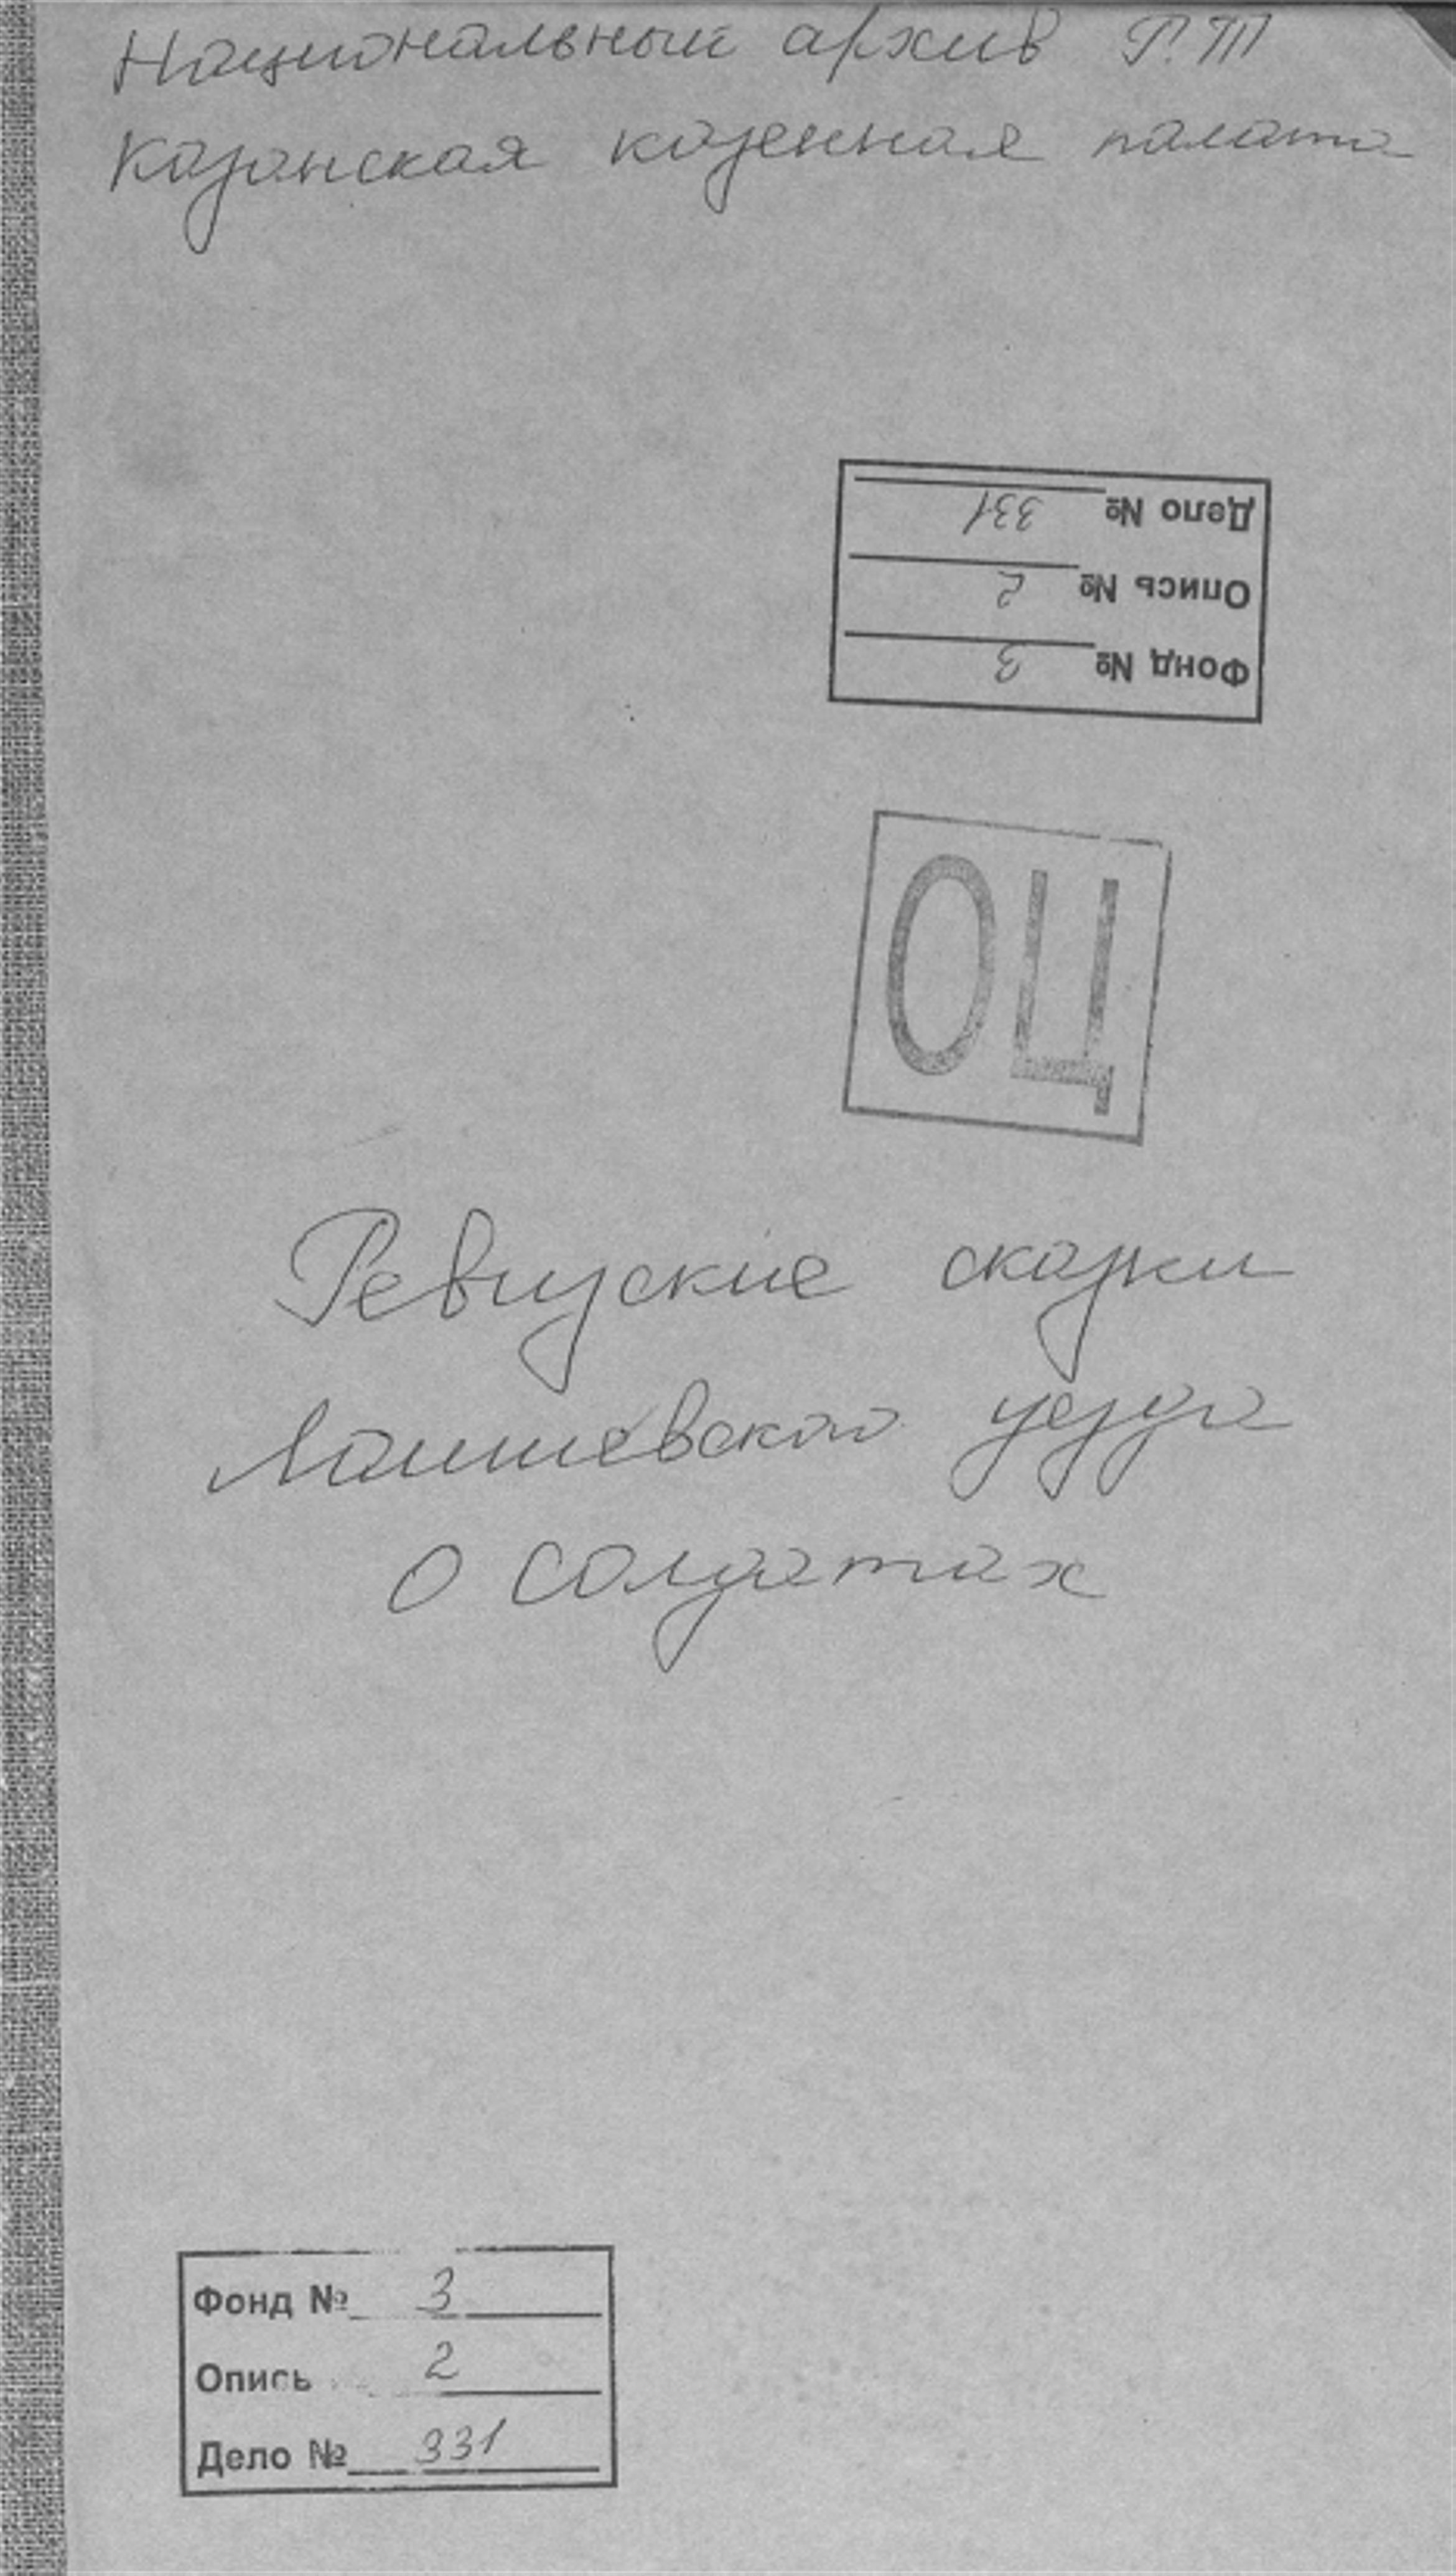 Национальный архив Р.Т
Казанская казенная палата
Дело № 331
Опись № 2
Фонд № 3
ОЦ
Ревизские сказки
Лаишевского уезда
о солдатах
Фонд № 3
Опись 2
Дело № 331